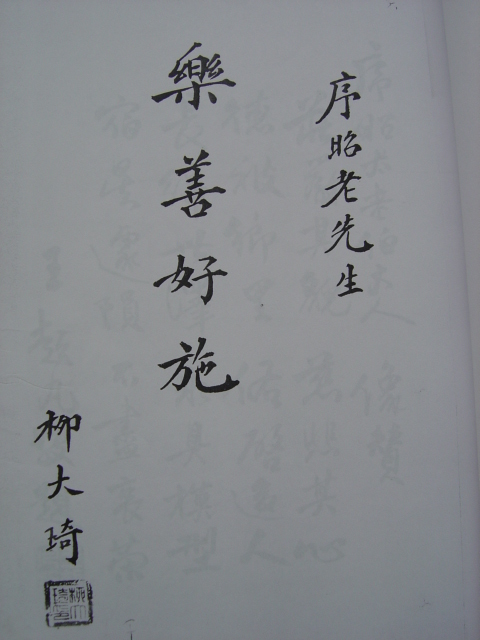 序昭老先生
樂善好施
柳大琦